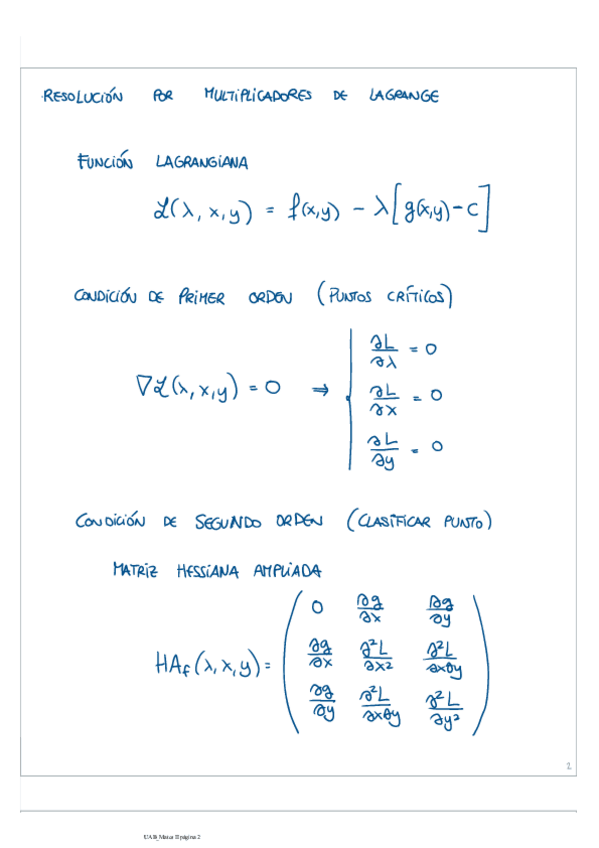 RESOLUCIÓN POR MULTIPLICADORES DE LAGRANGE
FUNCIÓN LAGRANGIANA
ℒ(λ, x, y) = f(x,y) − λ[g(x,y) − C]
CONDICIÓN DE PRIMER ORDEN (PUNTOS CRÍTICOS)
∇ℒ(λ, x, y) = 0 ⇒
∂L/∂λ = 0
∂L/∂x = 0
∂L/∂y = 0
CONDICIÓN DE SEGUNDO ORDEN (CLASIFICAR PUNTO)
MATRIZ HESSIANA AMPLIADA
HA_f(λ, x, y) =
0 ∂g/∂x ∂g/∂y
∂g/∂x ∂²L/∂x² ∂²L/∂x∂y
∂g/∂y ∂²L/∂x∂y ∂²L/∂y²
2